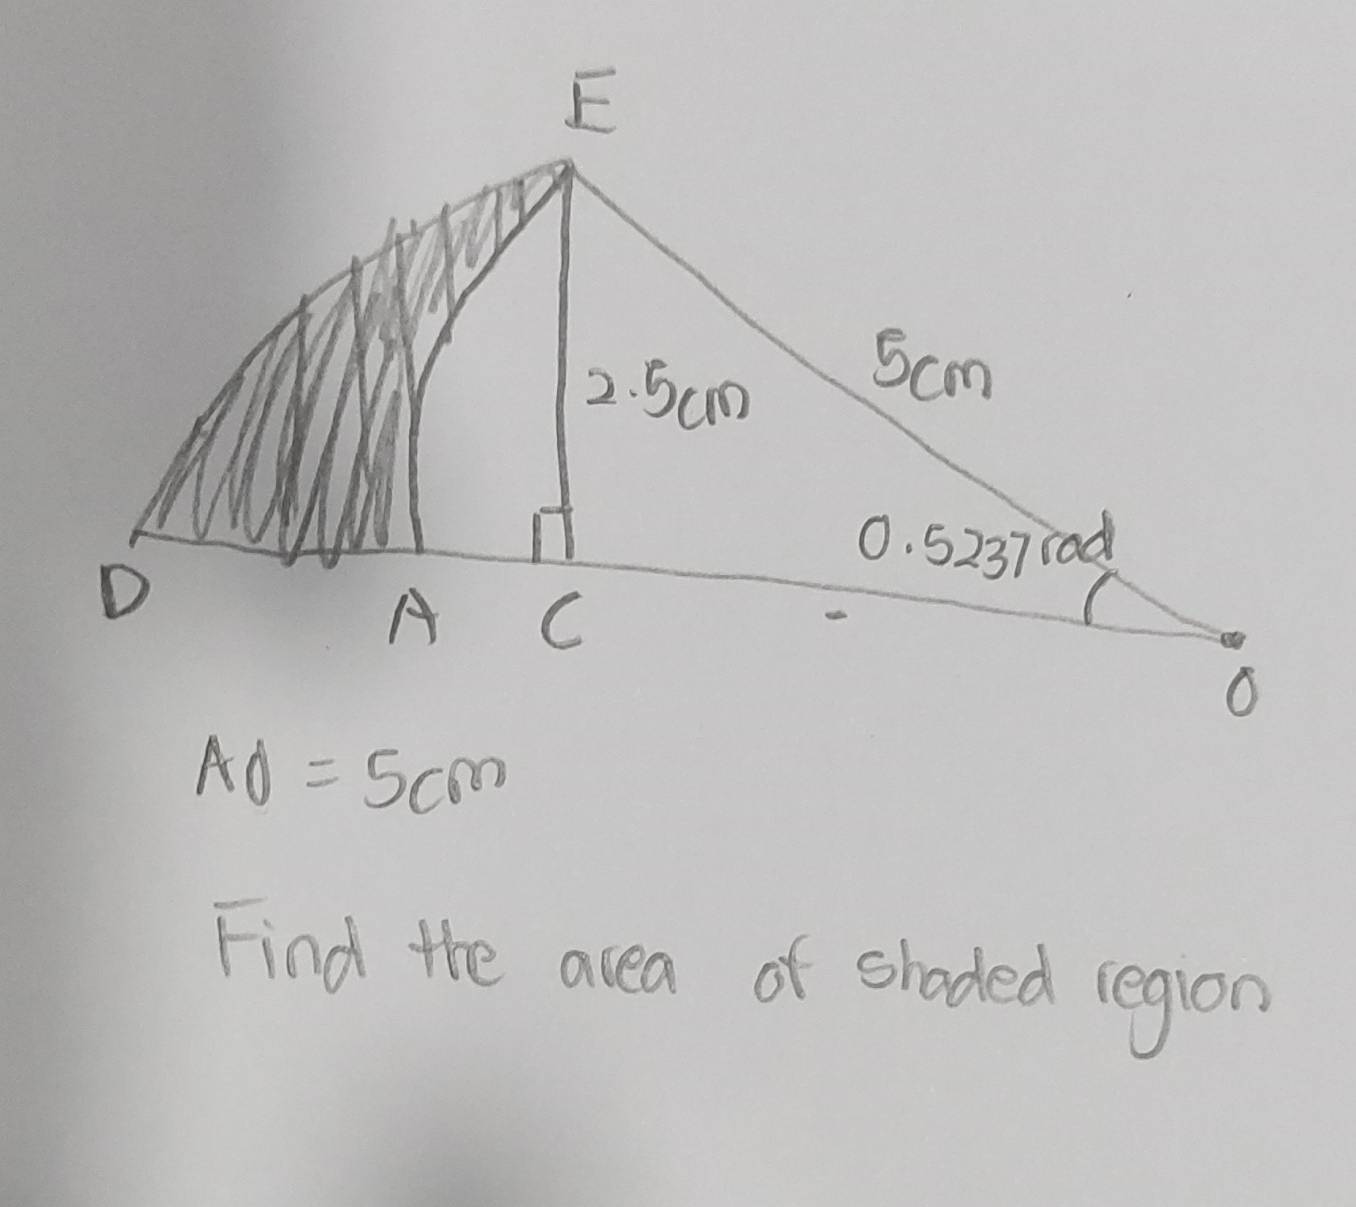 E
5cm
2.5cm
0.5237rad
D
A
C
O
AO = 5cm
Find the area of shaded region